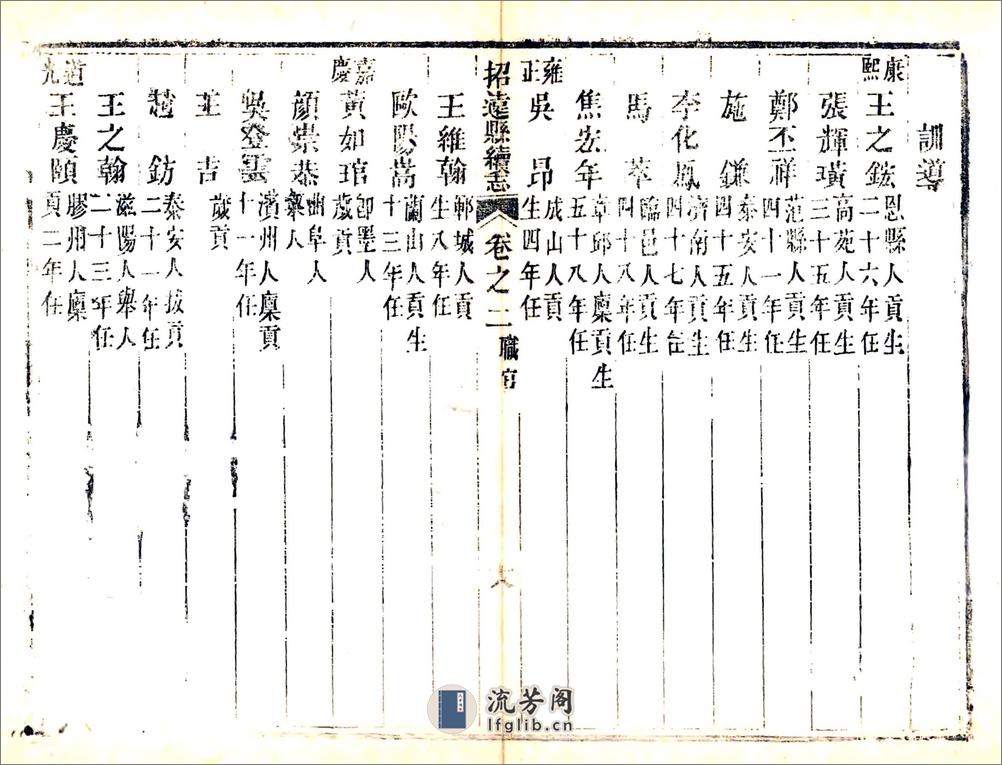 訓導
康熙
王之鋐 恩縣人貢生二十六年任
張輝璜 高苑人貢生三十五年任
鄭丕祥 范縣人貢生四十一年任
施鎌 泰安人貢生四十五年任
李化鳳 濟南人貢生四十七年任
馬萃 臨邑人貢生四十八年任
焦宏年 章邱人廩貢生五十八年任
雍正
吳昂 成山人貢生四年任
招遠縣續志 卷之二 職官 八
王維翰 鄆城人貢生八年任
歐陽嵩 蘭山人貢生十三年任
嘉慶
黃如琯 卽墨人歲貢
顏崇棻 曲阜人舉人
吳登雲 濱州人廩貢十一年任
王吉 歲貢
楚鈁 泰安人拔貢二十一年任
王之翰 滋陽人舉人二十三年任
道光
王慶頤 膠州人廩貢二年任
流芳阁
lfglib.cn